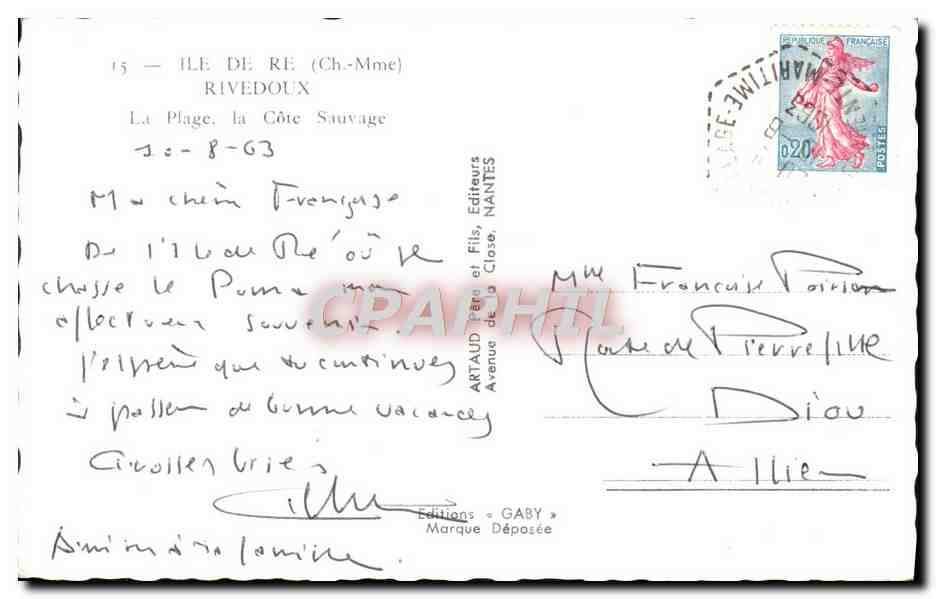 15 — ILE DE RE (Ch.-Mme)
RIVEDOUX
La Plage, la Côte Sauvage
10-8-63
Ma chère Françoise
De l'Ile de Ré où je
chasse le Puma mon
affectueux souvenir.
J'espère que tu continues
à passer de bonne vacances
Grosses bises
la famille.
ARTAUD Père et Fils, Editeurs
Avenue de la Close, NANTES
Editions « GABY »
Marque Déposée
REPUBLIQUE FRANÇAISE
0,20
POSTES
MARITIME
Mlle Françoise Poirier
Route de Pierrefitte
Diou
Allier
CPARPHIL